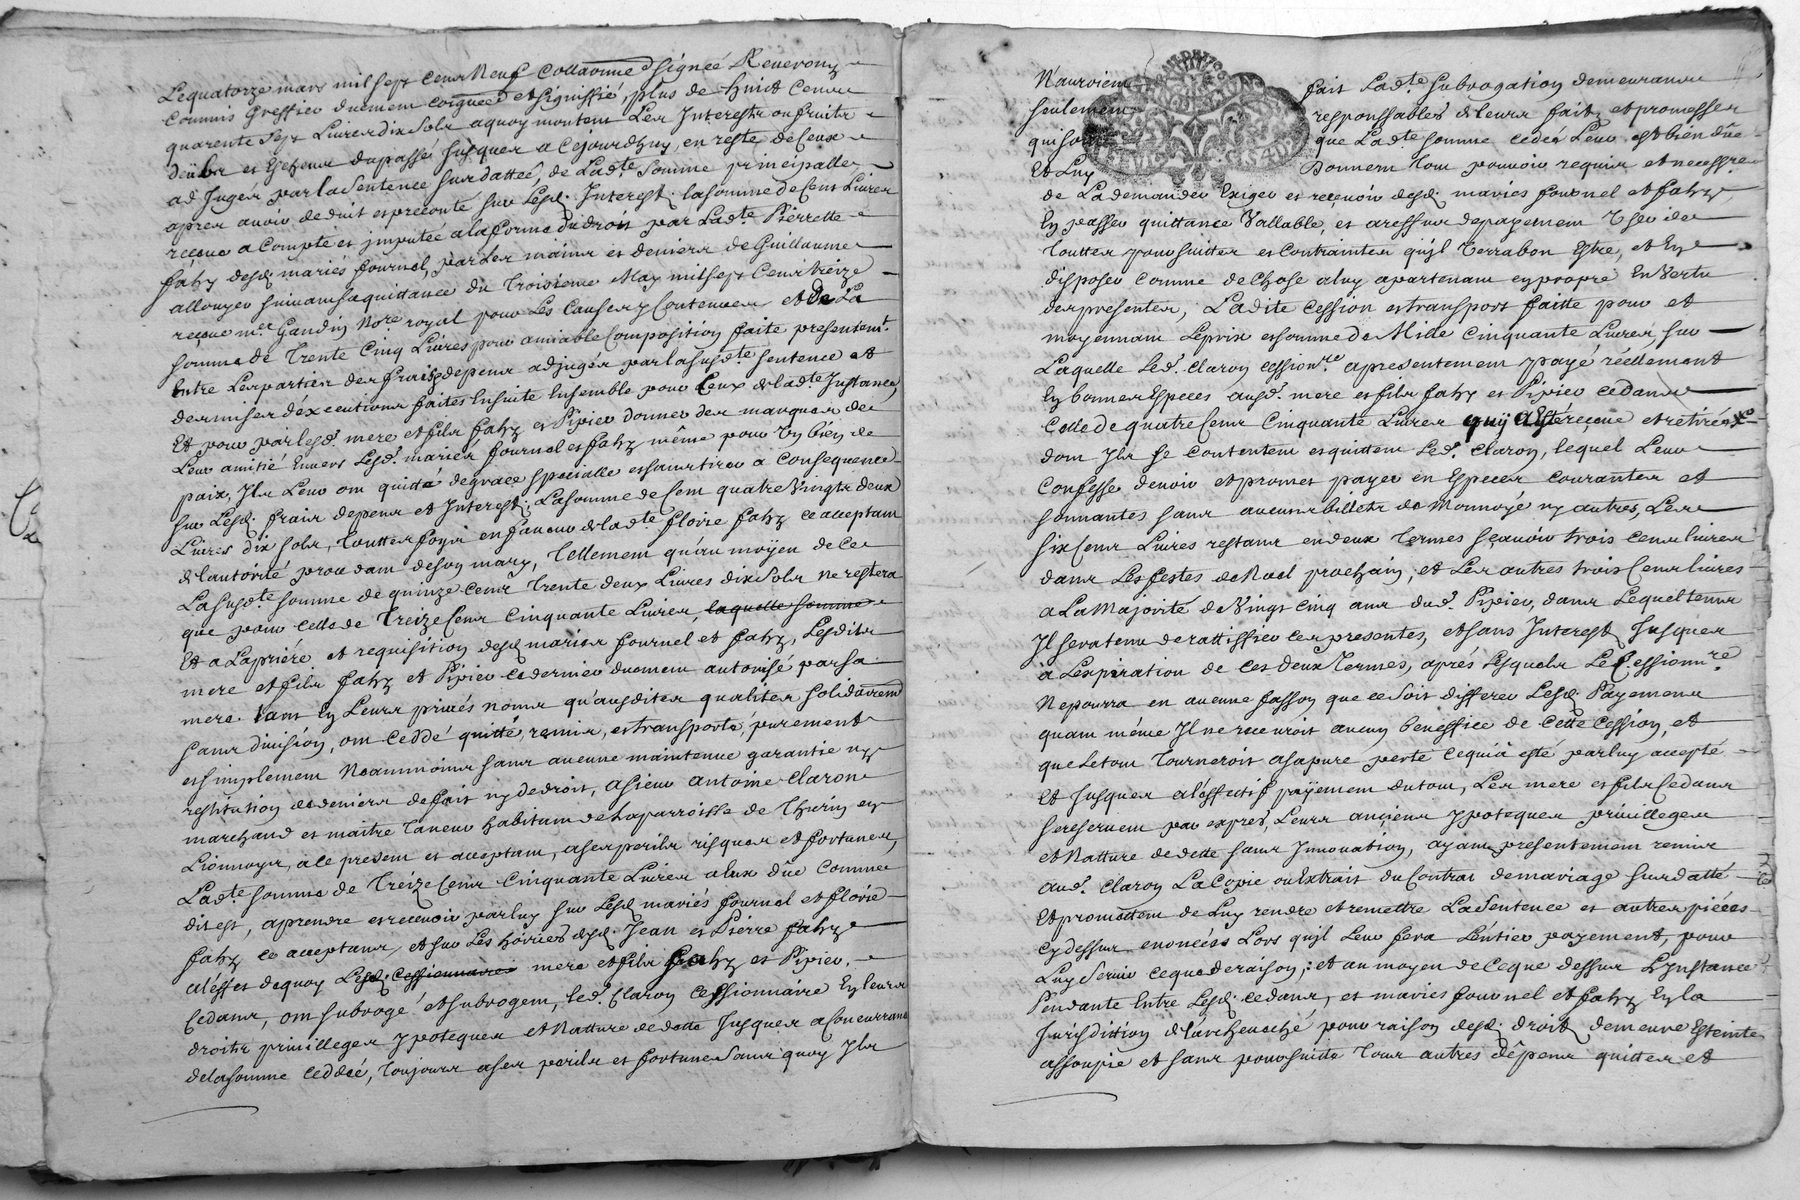 Lequatorze mars mil sept cens Neuf Collationné signée Reverony
Commis Greffier duement coignée et signiffié, plus de huict Cens
quarente sept Livres dix sols aquoy montent Les Interests ou fruits
deübs et Escheus dupassé jusques a Cejourdhuy en reste de Ceux
adjugés par la Sentence sus dattée, de Lad.te Somme principalle,
apres avoir deduit et preconté sur Lesd. Interest. la somme de Cent Livres
reçeue a Compte et jmputée a la forme du droit par Lad.te Pierrette
fahy desd. mariés fournel, par Les mains et deniers de Guillaume
allouyer suivant sa quittance du Troisieme May mil sept Cens treize
reçeue me Gandin No.re royal pour Les Causes y Contenues et De La
somme de Trente Cinq Livres pour amiable Composition faite presentem.t
Entre Les parties des frais et depens adjugés par la susd.te sentence et
des mises d'éxecutions faites Ensuite Ensemble pour Ceux de lad.te Instance,
Et pour par Lesd. mere et fils fahy et Pipier donner des marques de
Leur amitié Envers Lesd. mariés fournel et fahy même pour Un bien de
paix, Ils Leur ont quitté de grace specialle et sans tirer a Consequence
sur Lesd. frais depens et Interest; La somme de Cent quatre Vingts deux
Livres dix sols, Touttes foys en faveur de lad.te floire fahy ce acceptant
de l'autorité prou dam de son mary, Tellement qu'au moÿen de Ce
La susd.te somme de quinze Cens Trente deux Livres dix Sols ne restera
que pour Celle de Treize Cens Cinquante Livres, laquelle somme
Et a La priére et requisition desd. mariés fournel et fahy, Lesdits
mere et fils fahy et Pipier ce dernier duement autorisé par sa
mere. tant En Leurs privés noms qu'ausdites qualités solidairem.t
sans division, ont Ceddé quitté, remis, et transporté, purement
et simplement Neanmoins sans aucune maintenue garantie ny
restitution de deniers de fait ny de droit, a sieur antoine Claron
marchand et maitre Taneur habitant de La parroisse de Thurin en
Lionnoys, a Ce present et acceptant, a ses perils risques et fortunes,
Lad.te somme de Treize Cens Cinquante Livres a eux düe Comme
dit est, a prendre et recevoir par luy sur Lesd. mariés fournel et floire
fahy ce acceptans, et sur Les hoiries desd. Jean et Pierre fahy
a l'éffet de quoy Lesd. Cessionnaires mere et fils fahy et Pipier.
Cedans, ont subrogé et subrogent, led. Claron Cessionnaire En leurs
droits privilleges ypoteques et Natture de dette Jusques a Concurrance
de la somme Ceddée, Toujours a ses perils et fortunes sans quoy Ils
N'auroient fait Lad.te subrogation demeurans
seulement responssables de leurs faits et promesses
qui sont que Lad.te somme cedée Leur est bien düe
Et Luy Donnent tout pouvoir requis et necess.re
de La demander Exiger et reçevoir desd. mariés fournel et fahy
En passer quittance Vallable, et a reffus de payement User de
Touttes poursuittes et Contraintes qu'jl Verra bon Estre, et En
disposer Comme de Chose a luy apartenant en propre En Vertu
des presentes, La dite Cession et transport faitte pour et
moyennant Le prix et somme de Mille Cinquante Livres, sur
Laquelle Led. Claron Cession.re a presentement payé réellement
En bonnes Especes ausd. mere et fils fahy et Pipier cedans
Celle de quatre Cens Cinquante Livres quÿ A Esté reçeue et retirée
dont Ils se Contentent et quittent Led. Claron, lequel Leur
Confesse devoir et promet payer en Especes Courantes et
sonnantes sans aucuns billets de Monnoyé ny autres, Les
six Cens Livres restans en deux Termes sçavoir trois Cens livres
dans Les festes de Noel prochain, et Les autres trois Cens livres
a La Majorité de Vingt Cinq ans dud. Pipier, dans Lequel tems
Il sera tenu de rattiffier Les presentes, et sans Interest Jusques
à L'expiration de Ces deux Termes, aprés Lesquels Le Cessionn.re
Ne pourra en aucune fasson que ce soit differer Lesd. Payemens
quant même Il ne recevroit aucun beneffice de Cette Cession, et
que Le tout Tourneroit a sa pure perte Ce qui à esté par luy accepté
Et Jusques a l'éffectif payement du tout, Les mere et fils Cedans
se reservent par exprés, Leurs anciens ypoteques privilleges
et Natture de dette sans Innovation, ayant presentement remis
aud. Claron La Copie ou Extrait du Contrat de mariage sus datté
Et promettent de Luy rendre et remettre La Sentence et autres piéces
Cy dessus enoncées Lors qu'jl Leur fera L'entier payement, pour
Luy servir ce que de raison; et au moyen de Ce que dessus L'Instance
Pendante Entre Lesd. cedans, et mariés fournel et fahy En la
Jurisdittion de l'archeveché pour raison desd. droits demeure Esteinte
assoupie et sans poursuitte Tous autres dêpens quittes et